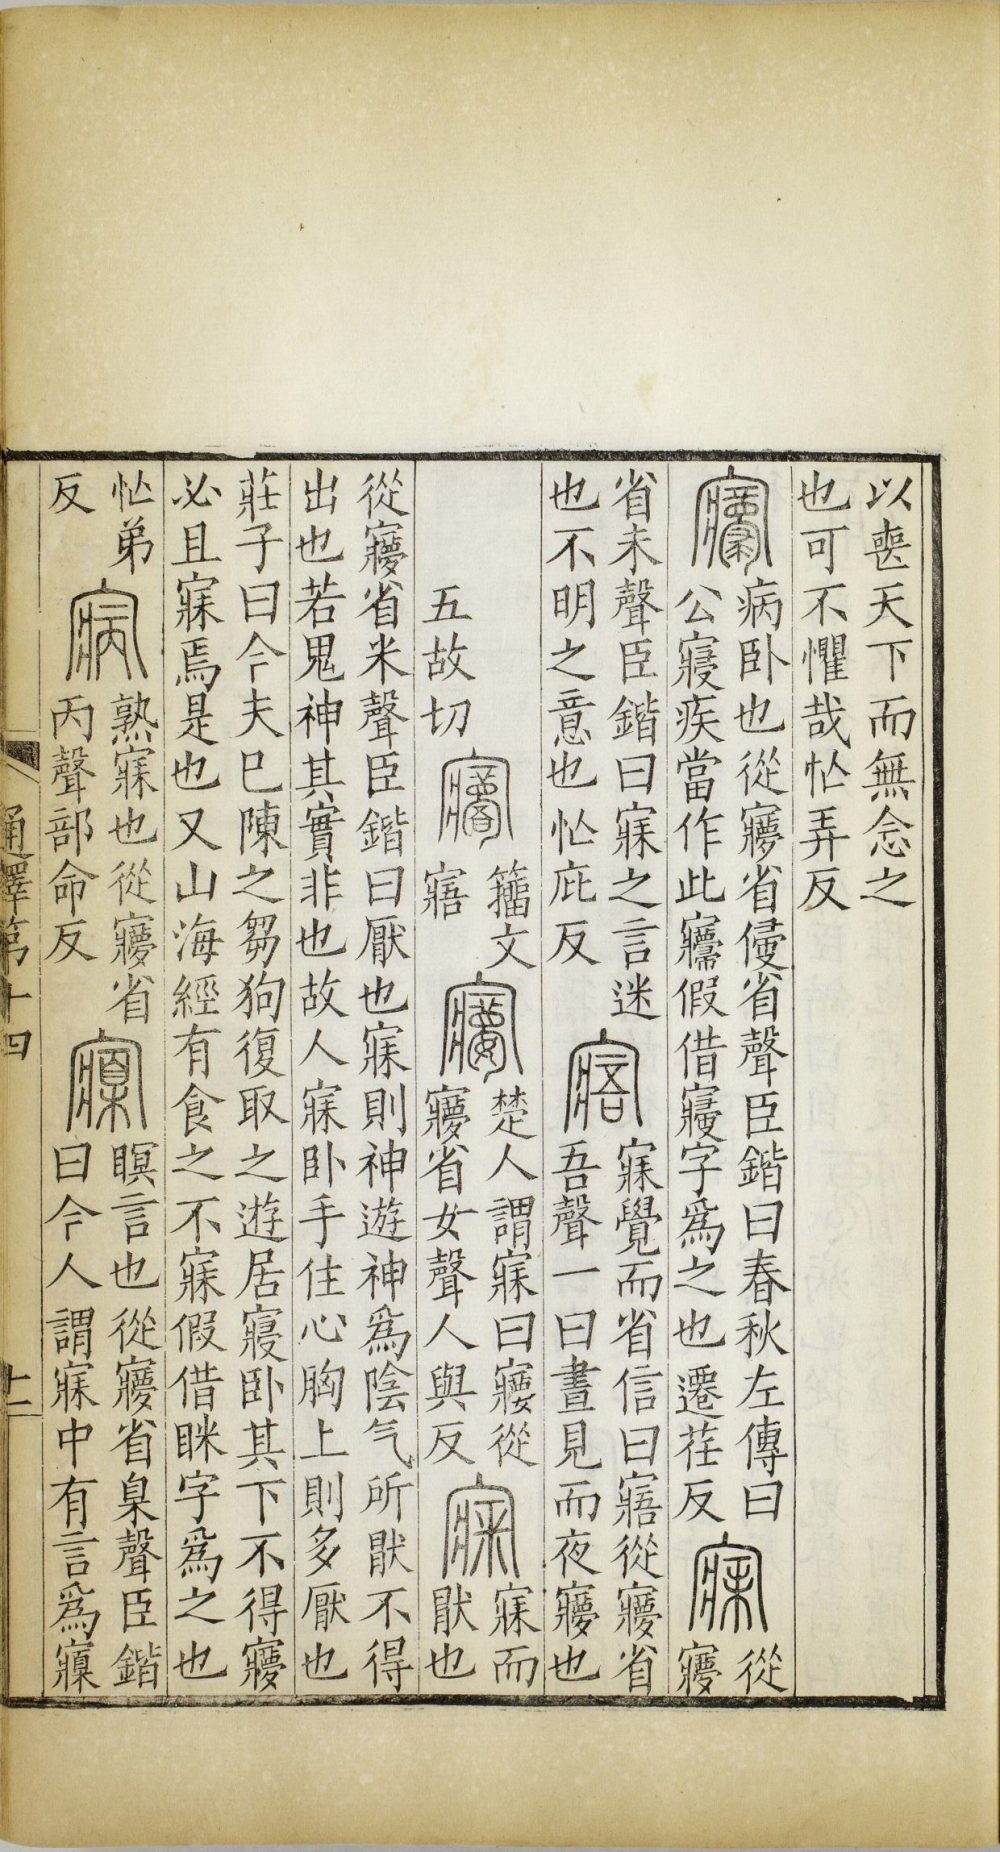 以喪天下而無念之
也可不懼哉忙弄反
𡫏
病卧也從㝱省𠬶省聲臣鍇曰春秋左傳曰
公寢疾當作此𡫏假借寢字爲之也遷荏反
寐
從
㝱
省未聲臣鍇曰寐之言迷
也不明之意也忙庇反
寤
寐覺而省信曰寤從㝱省
吾聲一曰晝見而夜㝱也
五故切
籀文
寤
楚人謂寐曰㝧從
㝱省女聲人與反
寐而
猒也
從㝱省米聲臣鍇曰厭也寐則神遊神爲陰气所猒不得
出也若鬼神其實非也故人寐卧手住心胸上則多厭也
莊子曰今夫已陳之芻狗復取之遊居寢卧其下不得㝱
必且寐焉是也又山海經有食之不寐假借眯字爲之也
忙弟
反
熟寐也從㝱省
丙聲部命反
瞑言也從㝱省臬聲臣鍇
曰今人謂寐中有言爲寱
通釋第十四
十二